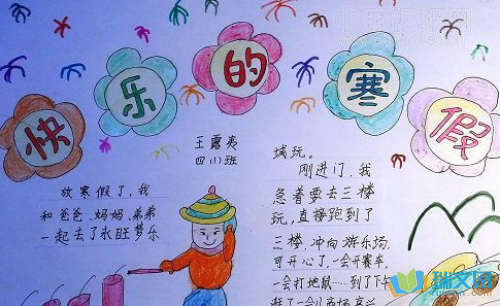 快乐的寒假
王露
四(1)班
放寒假了，我
和爸爸、妈妈、弟弟
一起去了永旺梦乐
城玩。
刚进门，我
急着要去三楼
玩，直接跑到了
三楼，冲向游乐场，
可开心了，一会开赛车，
一会打地鼠……到了下午
瑞文网